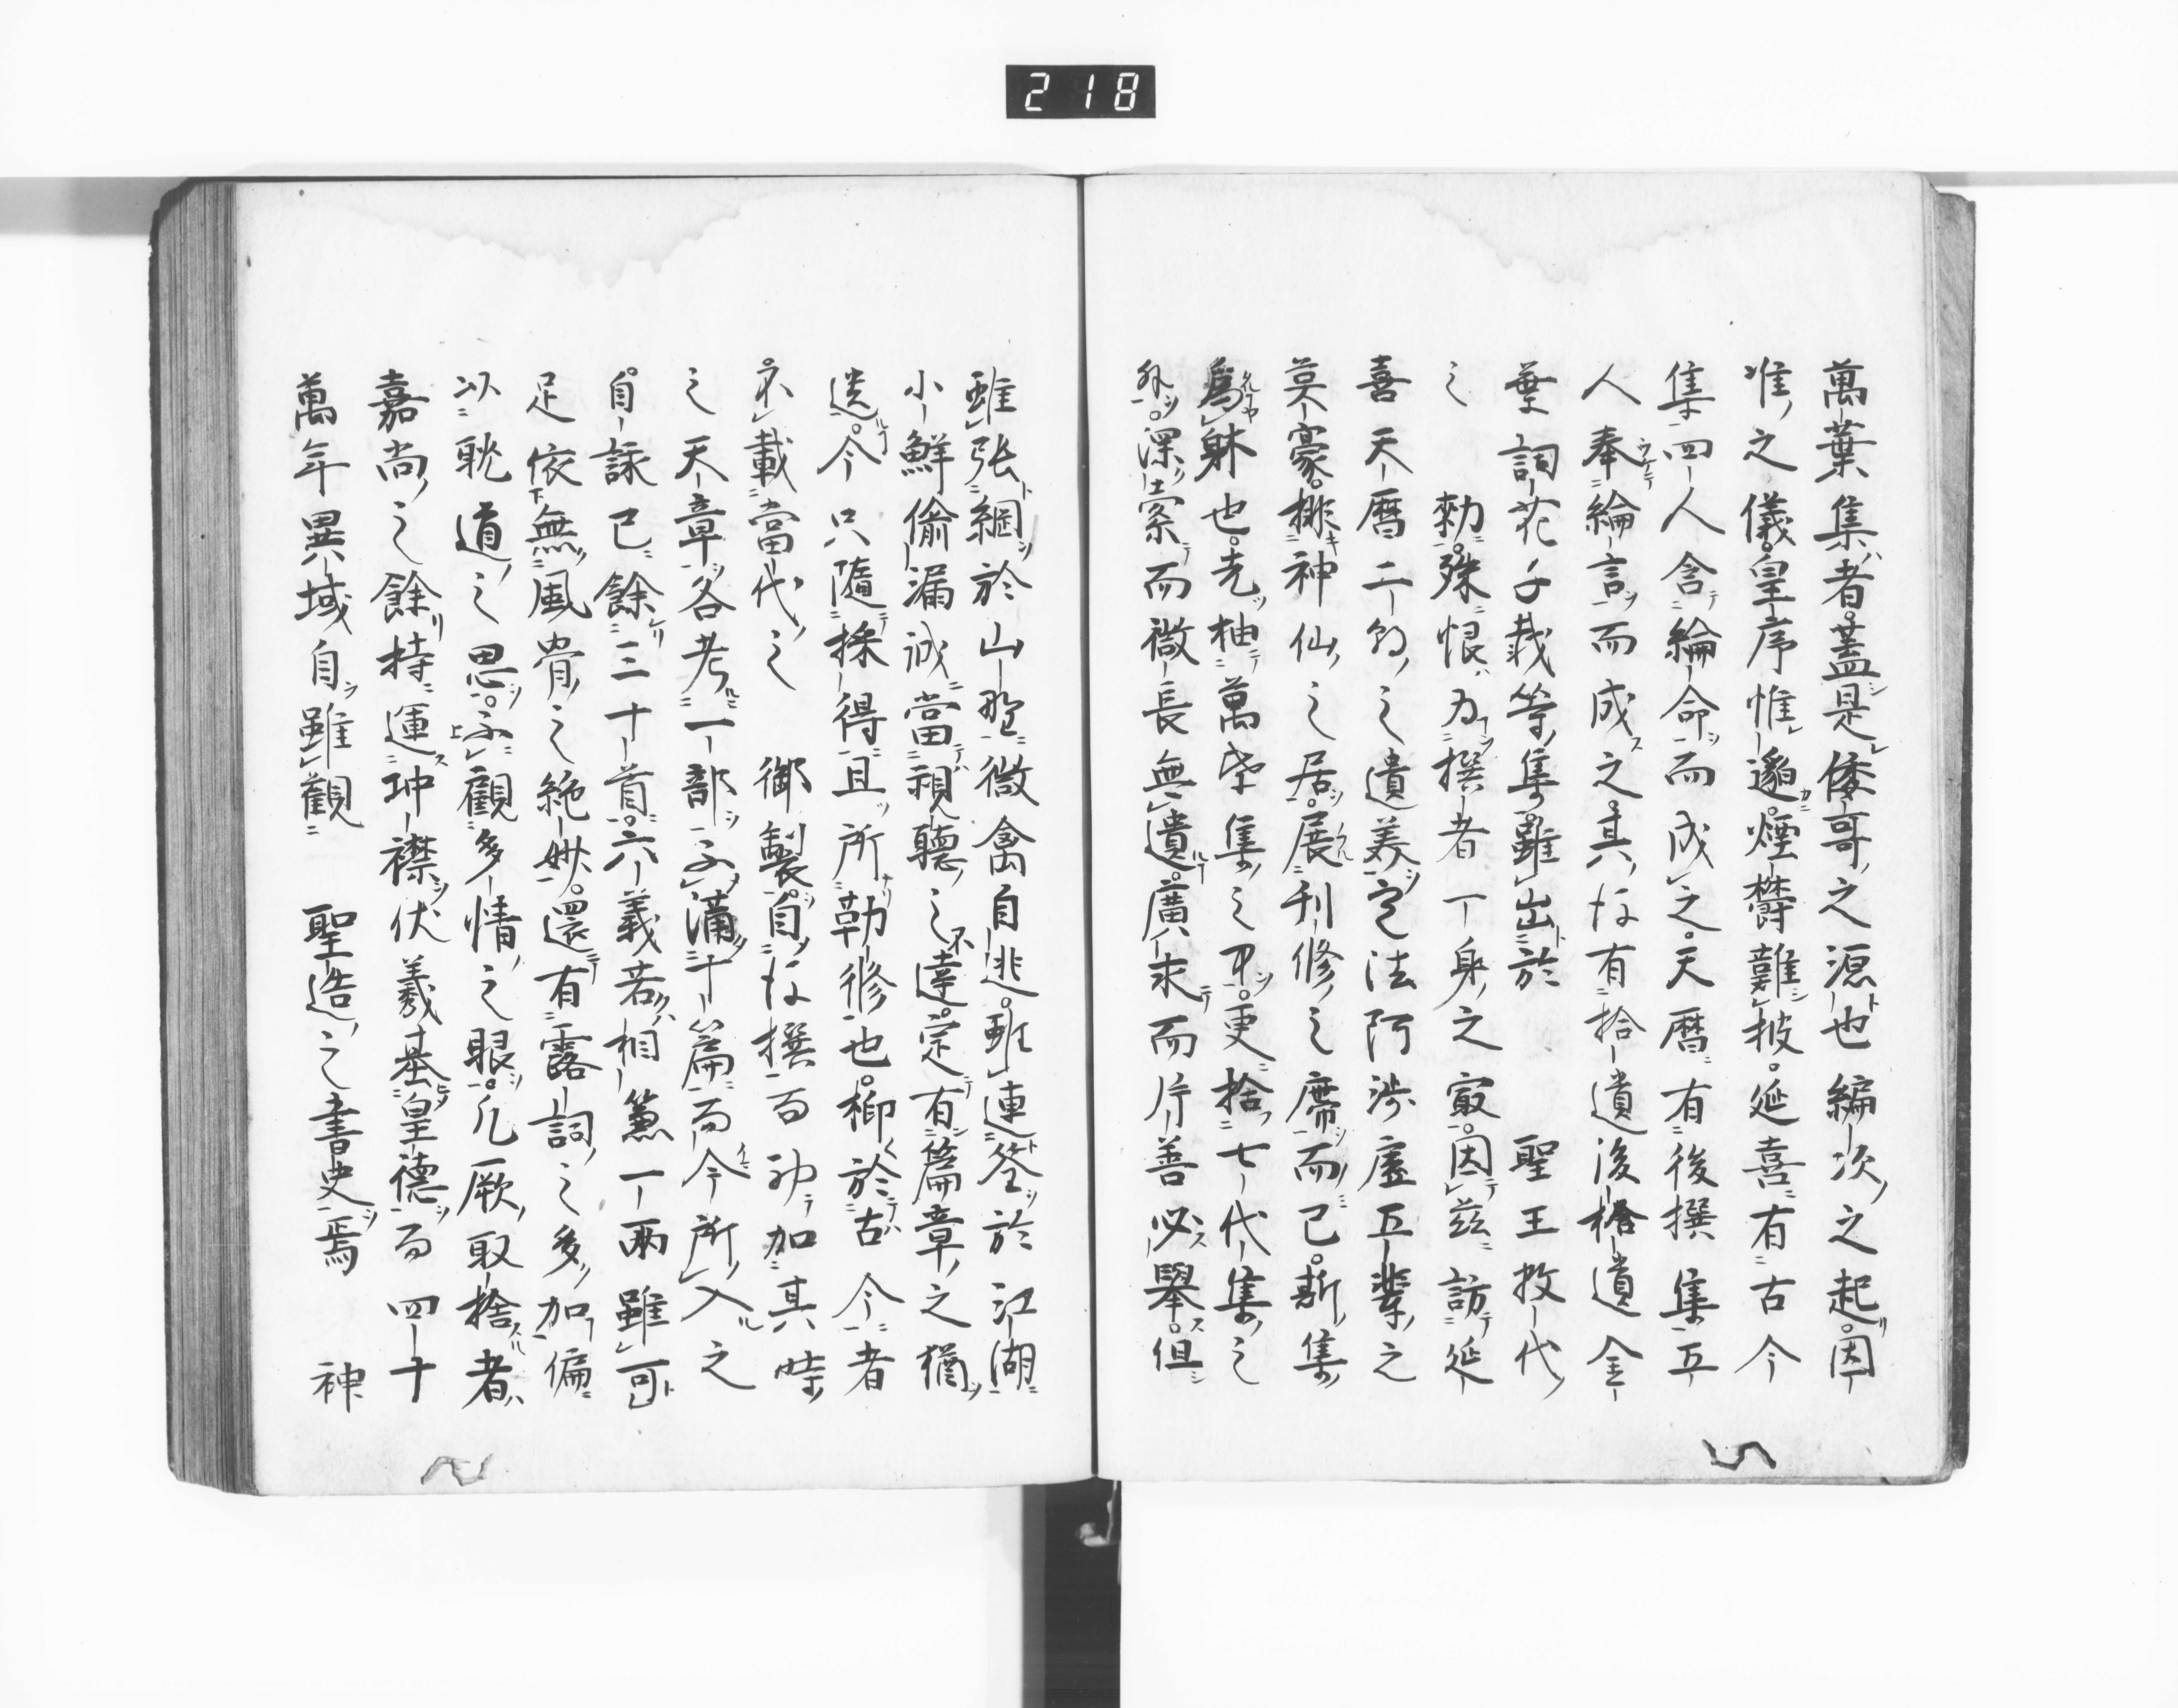 218
萬葉集者蓋是倭哥之源也編次之起因
准之儀皇序惟邈煙欝難披延喜有古今
集四人含綸命而成之天曆有後撰集五
人奉綸言而成之其後有拾遺後拾遺金
葉詞花千載等集雖出於 聖王数代
之 勅殊恨為撰者一身之最因茲訪延
喜天曆二朝之遺美定法河渉虚五輩之
英豪排神仙之居展刊修之席而已斯集
為躰也先抽萬葉集之中更捨七代集之
外深索而微長無遺廣求而片善必舉但
雖張網於山野微禽自逃雖連筌於江湖
小鮮偷漏誠當視聽之不達定有篇章之猶
遺今只隨採得且所勒終也抑於古今者
不載當代之 御製自後撰而初加其時
之天章各考一部不滿十篇而今所入之
自詠已餘三十首六義若相兼一兩雖可
足依無風骨之絶妙還有露詞之多加偏
以耽道之思不顧多情之眼凡厥取捨者
嘉尚之餘特運冲襟伏羲基皇德而四十
萬年異域自雖觀 聖造之書史焉 神